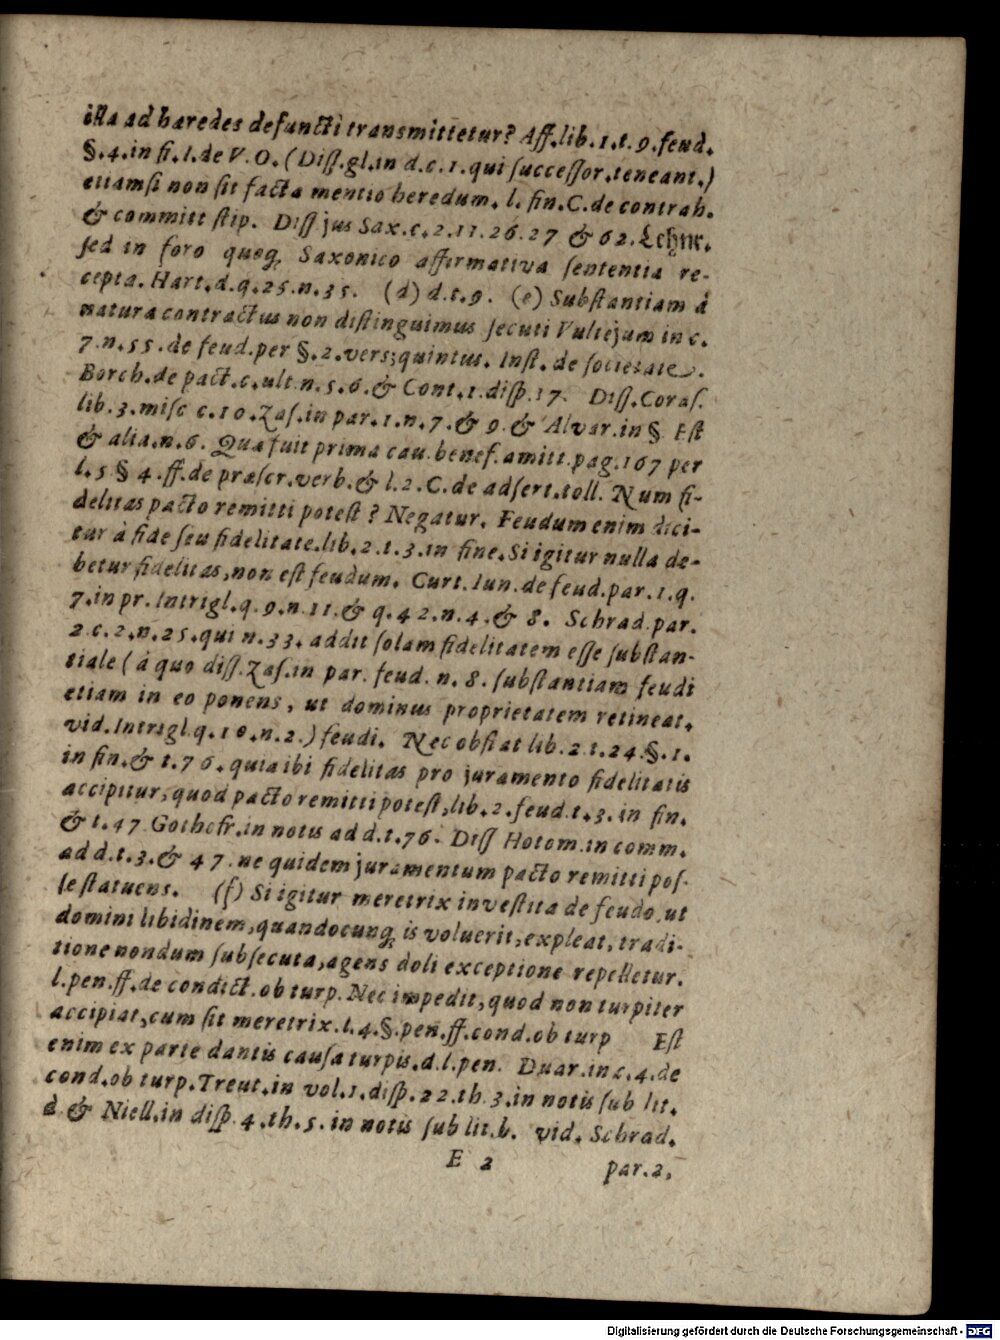 illa ad hæredes defuncti transmittetur? Aff.lib.1.t.9.feud.
§.4.in fi.l.de V.O.(Diss.gl.in d.c.1.qui successor.teneant.)
etiamsi non sit facta mentio heredum. l. fin.C.de contrah.
& committ stip. Diss jus Sax.c.2.11.26.27 & 62. Lehnr.
sed in foro quoq; Saxonico affirmativa sententia re-
cepta. Hart.d.q.25.n.35. (d) d.t.9. (e) Substantiam à
natura contractus non distinguimus secuti Vultejum in c.
7.n.55.de feud.per §.2.vers;quintus. Inst. de societate.
Borch.de pact.c.ult.n.5.6.& Cont.1.disp.17. Diss.Coras.
lib.3.misc c.10.Zas.in par.1.n.7.& 9.& Alvar.in §. Est
& alia.n.6. Quæ fuit prima cau.benef.amitt.pag.167 per
l.5 § 4.ff.de præscr.verb.& l.2.C.de adsert.toll. Num fi-
delitas pacto remitti potest? Negatur. Feudum enim dici-
tur à fide seu fidelitate.lib.2.t.3.in fine.Si igitur nulla de-
betur fidelitas,non est feudum. Curt.Iun.de feud.par.1.q.
7.in pr.Intrigl.q.9.n.11.& q.42.n.4.& 8. Schrad.par.
2.c.2.n.25.qui n.33.addit solam fidelitatem esse substan-
tiale (à quo diss.Zas.in par. feud. n.8. substantiam feudi
etiam in eo ponens, ut dominus proprietatem retineat.
vid.Intrigl.q.10.n.2.) feudi. Nec obstat lib.2.t.24.§.1.
in fin.& t.76.quia ibi fidelitas pro juramento fidelitatis
accipitur,quod pacto remitti potest,lib.2.feud.t.3.in fin.
& t.47 Gothofr.in notis ad d.t.76. Diss Hotom.in comm.
ad d.t.3.& 47.ne quidem juramentum pacto remitti pos-
se statuens. (f) Si igitur meretrix investita de feudo,ut
domini libidinem,quandocunq; is voluerit,expleat,tradi-
tione nondum subsecuta,agens doli exceptione repelletur.
l.pen.ff.de condict.ob turp.Nec impedit,quod non turpiter
accipiat,cum sit meretrix.l.4.§.pen.ff.cond.ob turp Est
enim ex parte dantis causa turpis.d.l.pen. Duar.in c.4.de
cond.ob turp.Treut.in vol.1.disp.22.th 3.in notis sub lit.
d & Niell.in disp.4.th.5. in notis sub lit.b. vid. Schrad.
E 2 par.2,
Digitalisierung gefördert durch die Deutsche Forschungsgemeinschaft - DFG